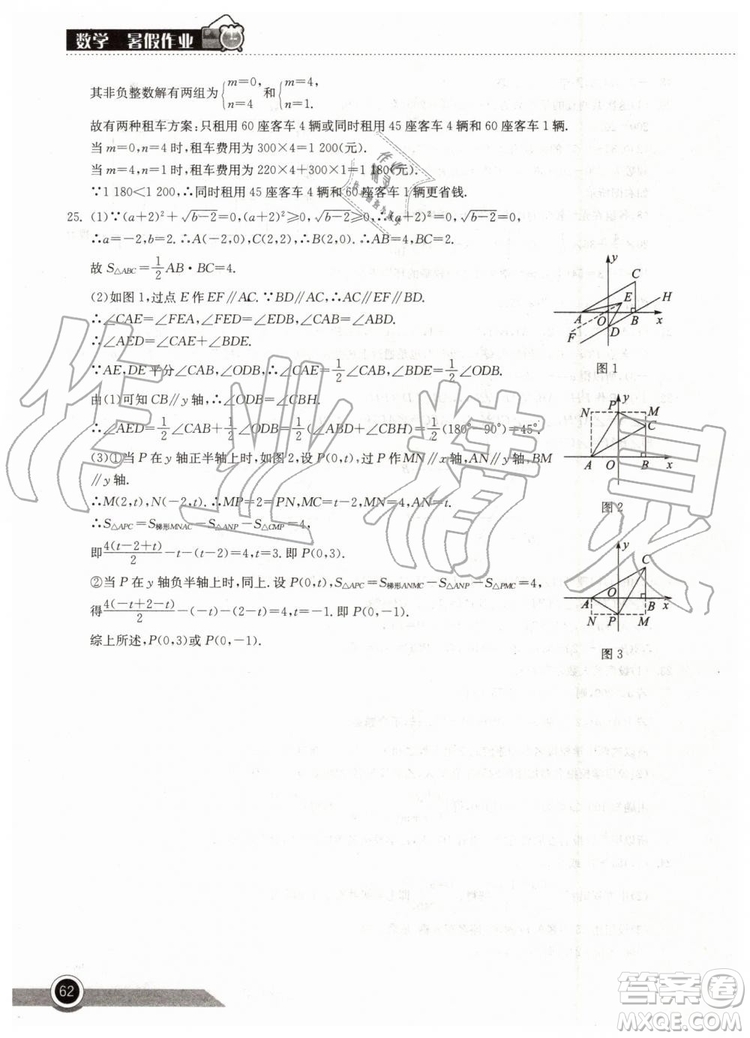 数学 暑假作业
其非负整数解有两组为{m=0, n=4 和{m=4, n=1.
故有两种租车方案:只租用 60 座客车 4 辆或同时租用 45 座客车 4 辆和 60 座客车 1 辆.
当 m=0,n=4 时,租车费用为 300×4=1 200(元).
当 m=4,n=1 时,租车费用为 220×4+300×1=1 180(元).
∵1 180<1 200,∴同时租用 45 座客车 4 辆和 60 座客车 1 辆更省钱.
25. (1)∵(a+2)²+√(b-2)=0,(a+2)²≥0,√(b-2)≥0,∴(a+2)²=0,√(b-2)=0.
∴a=-2,b=2. ∴A(-2,0),C(2,2),∴B(2,0). ∴AB=4,BC=2.
故 S△ABC=1/2 AB·BC=4.
(2)如图 1,过点 E 作 EF∥AC. ∵BD∥AC,∴BD∥AC∥EF.
∴∠CAE=∠FEA,∠FED=∠EDB,∠CAB=∠ABD.
∴∠AED=∠CAE+∠EDB.
∵AE,DE 平分∠CAB,∠ODB,∴∠CAE=1/2∠CAB,∠EDB=1/2∠ODB.
由(1)可知 CB∥y 轴,∴∠ODB=∠CBH.
∴∠AED=1/2∠CAB+1/2∠ODB=1/2(∠ABD+∠CBH)=1/2(180°-90°)=45°.
(3)①当 P 在 y 轴正半轴上时,如图 2,设 P(0,t),过 P 作 MN∥x 轴,AN∥y 轴,BM
∥y 轴.
∴M(2,t),N(-2,t). ∴MP=2=PN,CM=t-2,AN=t.
∴S△APC=S梯形MNAC-S△ANP-S△CMP=4,
即4(t-2+t)/2-t-(t-2)=4,t=3. 即 P(0,3).
②当 P 在 y 轴负半轴上时,同上. 设 P(0,t),S△APC=S梯形ANMC-S△ANP-S△PMC=4,
得4(-t+2-t)/2-(-t)-(2-t)=4,t=-1. 即 P(0,-1).
综上所述,P(0,3)或(0,-1).
y
C
E
H
A
O
B
x
F
D
图 1
y
N
P
M
C
A
O
B
x
图 2
y
C
O
A
B
x
N
P
M
图 3
作业精灵
62
答案圈
MXQE.COM